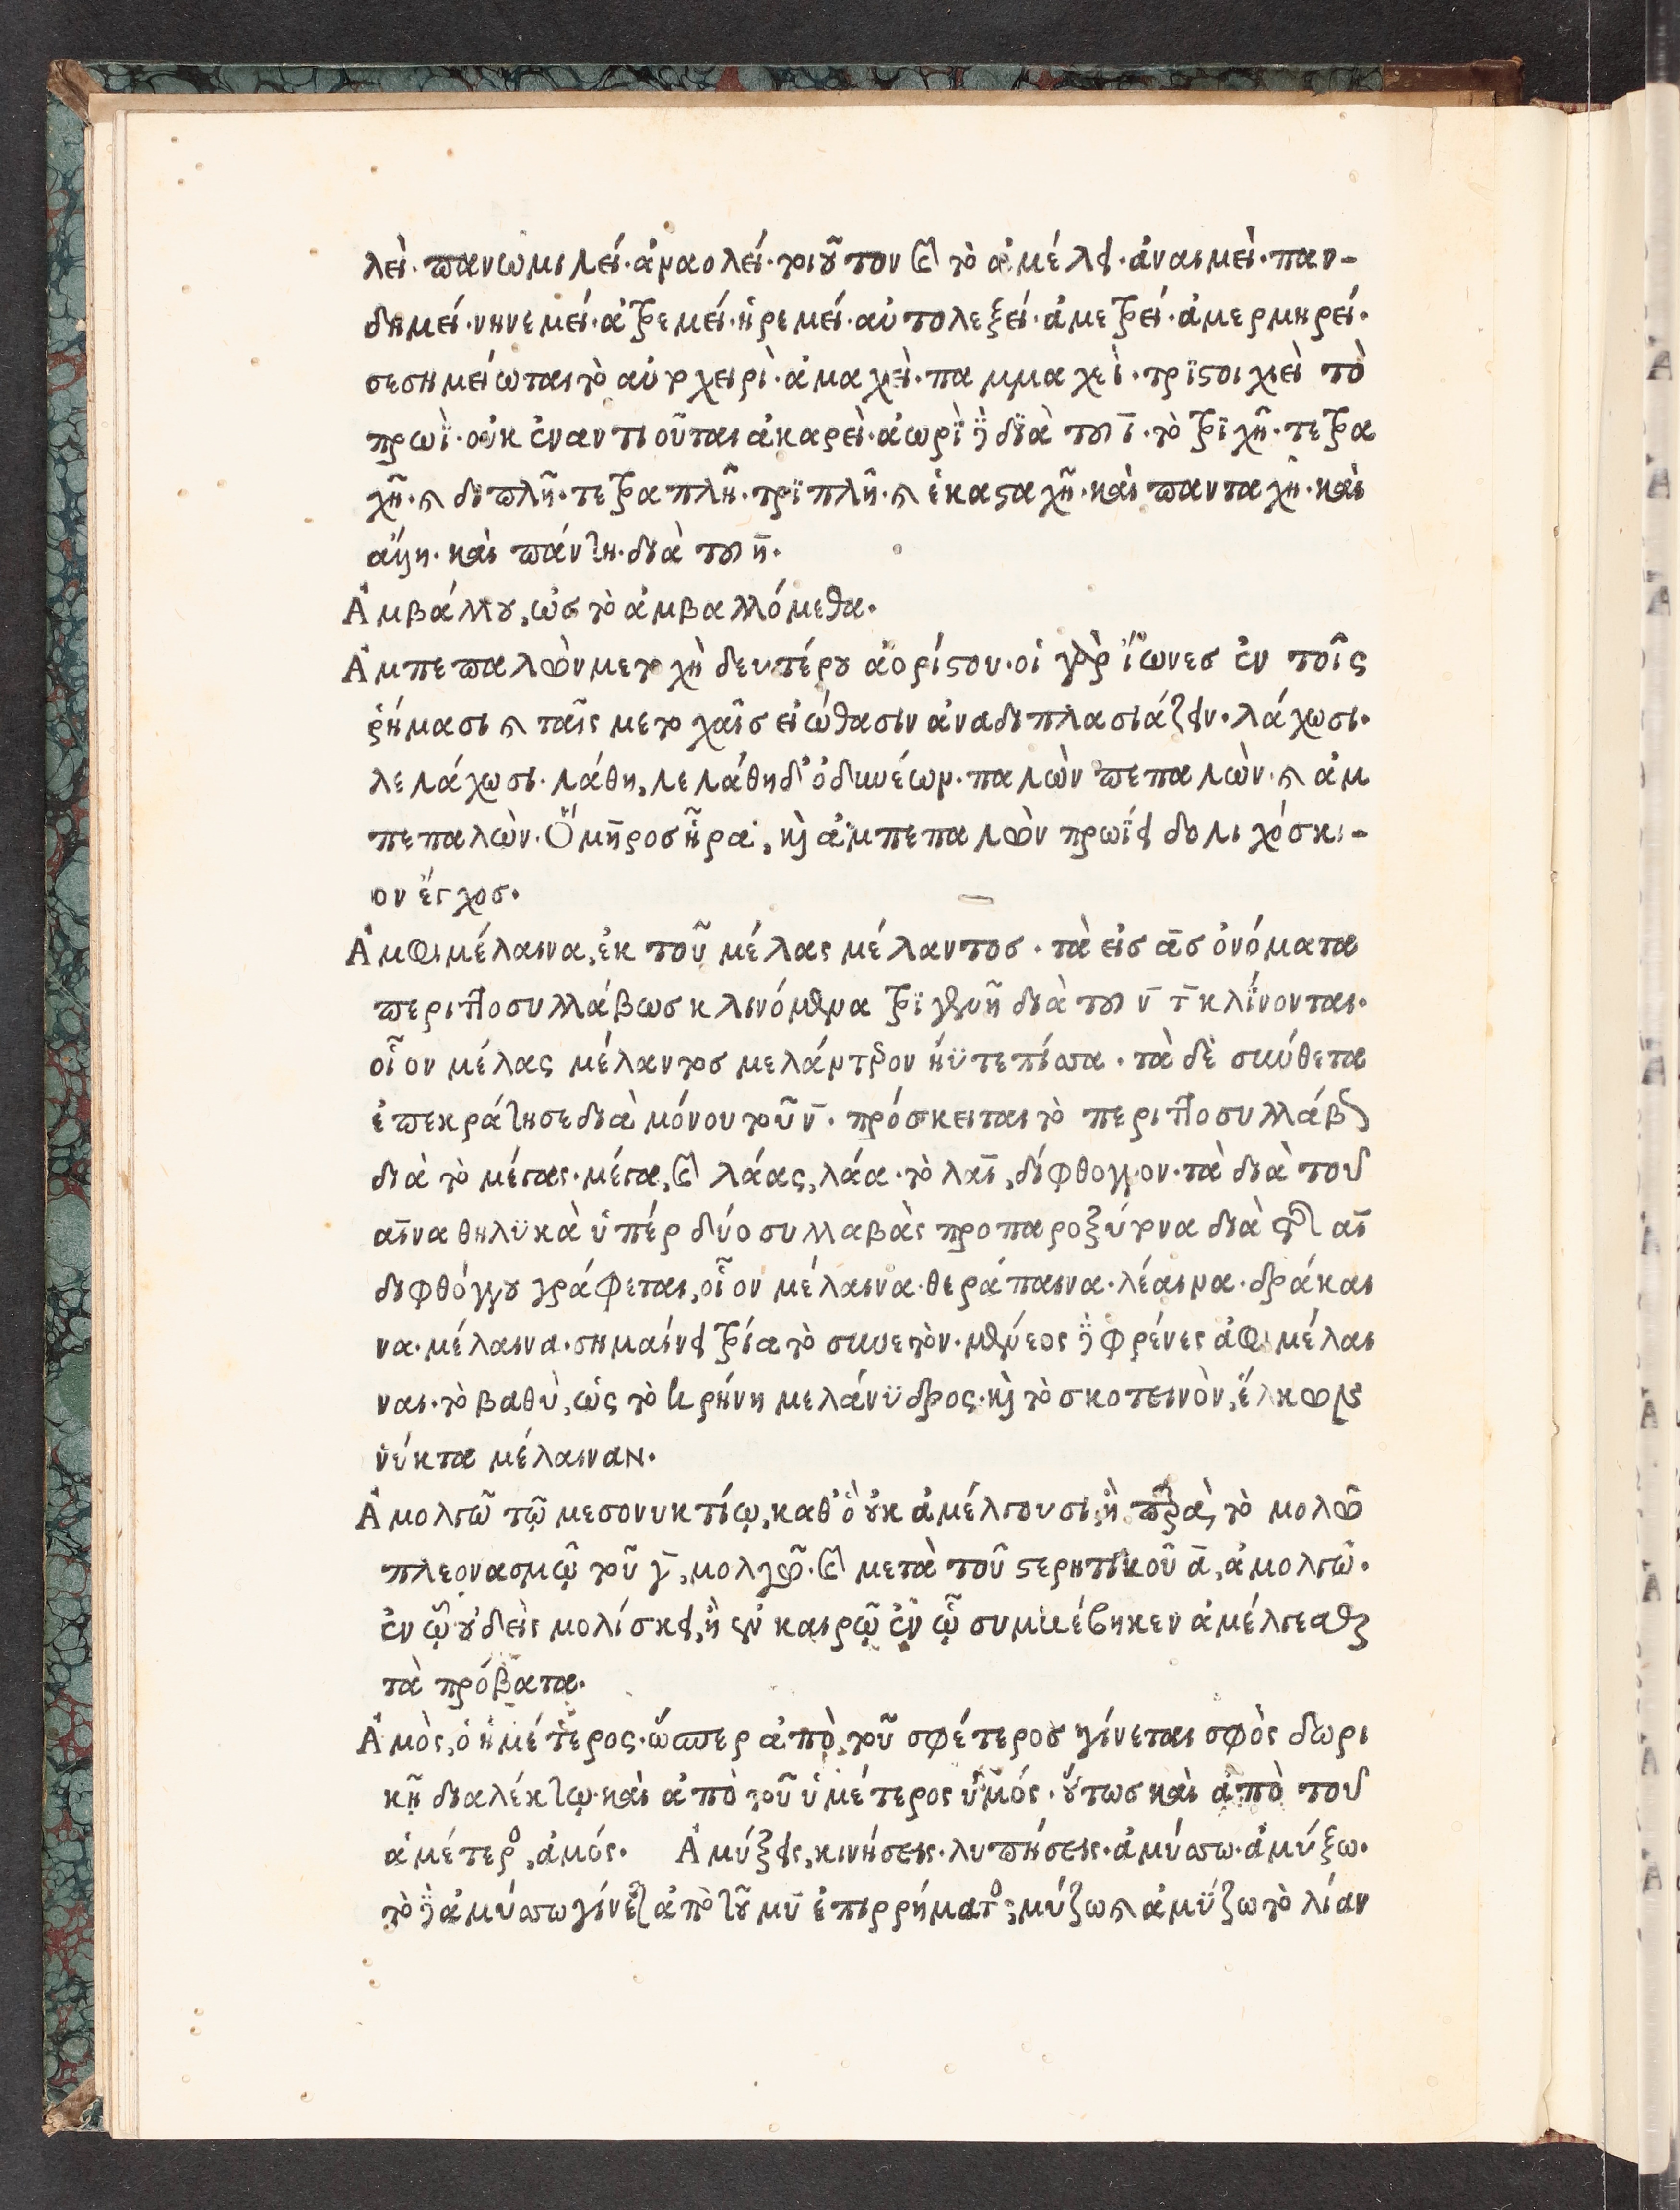 λεὶ· πανωμιλεί· ἀμαολεί· τοιοῦτον καὶ τὸ ἀμέλει· ἀναιμεὶ· παν-
δημεί· νηνεμεί· ἀτρεμεί· ἠρεμεί· αὐτολεξεί· ἀμετρεί· ἀμερμηρεί·
σεσημείωται τὸ αὐτοχειρὶ· ἀμαχεὶ· παμμαχεὶ· τρϊστοιχεὶ τὸ
πρωῒ· οὐκ ἐναντιοῦται ἀκαρεὶ· ἀωρῒ δὲ δϊὰ τοῦ ῑ· τὸ τρϊχῆ· τετρα
χῆ· καὶ δϊπλῆ· τετραπλῆ· τρϊπλῆ· καὶ ἑκασταχῆ· καὶ πανταχῆ· καὶ
ἄλλη· καὶ πάντη· διὰ τοῦ η̄.
Ἀμβάλλου, ὡσ τὸ ἀμβαλλόμεθα.
Ἀμπεπαλὼν μετοχὴ δευτέρου ἀορίστου· οἱ γὰρ ἴωνεσ ἐν τοῖς
ῥήμασι καὶ ταῖς μετοχαῖσ εἰώθασιν ἀναδιπλασιάζειν· λάχωσι·
λελάχωσι· λάθη, λελάθη δ' ὀδυνέων· παλὼν πεπαλὼν· καὶ ἀμ
πεπαλὼν· Ὅμηροσ ἦρα, καὶ ἀμπεπαλὼν πρωΐει δολιχόσκι-
ον ἔγχοσ.
Ἀμφιμέλαινα, ἐκ τοῦ μέλας μέλαντοσ· τὰ εἰσ ᾱσ ὀνόματα
περιττοσυλλάβωσ κλινόμενα τρϊγενῆ διὰ τοῦ ν̄ τ̄ κλΐνονται·
οἷον μέλας μέλαντοσ μελάντερον ἠΰτε πίσσα· τὰ δὲ σύνθετα
ἐπεκράτησε διὰ μόνου τοῦ ν̄· πρόσκειται τὸ περιττοσυλλάβως
διὰ τὸ μέγας· μέγα, καὶ λάας, λάα· τὸ λαῑ, δίφθογγον· τὰ διὰ τοῦ
αῑνα θηλϋκὰ ὑπέρ δύο συλλαβὰς προπαροξύτονα διὰ τῆς αῑ
διφθόγγου γράφεται, οἷον μέλαινα· θεράπαινα· λέαινα· δράκαι
να· μέλαινα· σημαίνει τρία τὸ συνετὸν· μένεος δὲ φρένες ἀμφιμέλαι
ναι· τὸ βαθὺ, ὡς τὸ κρήνη μελάνϋδρος· καὶ τὸ σκοτεινὸν, ἕλκων
νύκτα μέλαιναν.
Ἀμολγῶ τῷ μεσονυκτίῳ, καθ' ὃ οὐκ ἀμέλγουσι, ἢ παρὰ, τὸ μολῶ
πλεονασμῷ τοῦ γ̄, μολγῶ· καὶ μετὰ τοῦ στερητικοῦ ᾱ, ἀμολγῶ·
ἐν ᾧ οὐδεὶς μολίσκει, ἢ ἐν καιρῷ ἐν ᾧ συμβέβηκεν ἀμέλγεσθαι
τὰ πρόβατα.
Ἀμὸς, ὁ ἡμέτερος· ὥσπερ ἀπὸ τοῦ σφέτεροσ γίνεται σφὸς δωρι
κῇ διαλέκτῳ· καὶ ἀπὸ τοῦ ὑμέτερος ὑμός· οὕτωσ καὶ ἀπὸ τοῦ
ἁμέτερος, ἁμός. Ἀμύξεις, κινήσεις· λυπήσεις· ἀμύσσω· ἀμύξω·
τὸ δὲ ἀμύσσω γίνεται ἀπὸ τοῦ μῡ ἐπιρρήματος, μύζω καὶ ἀμΰζω τὸ λίαν